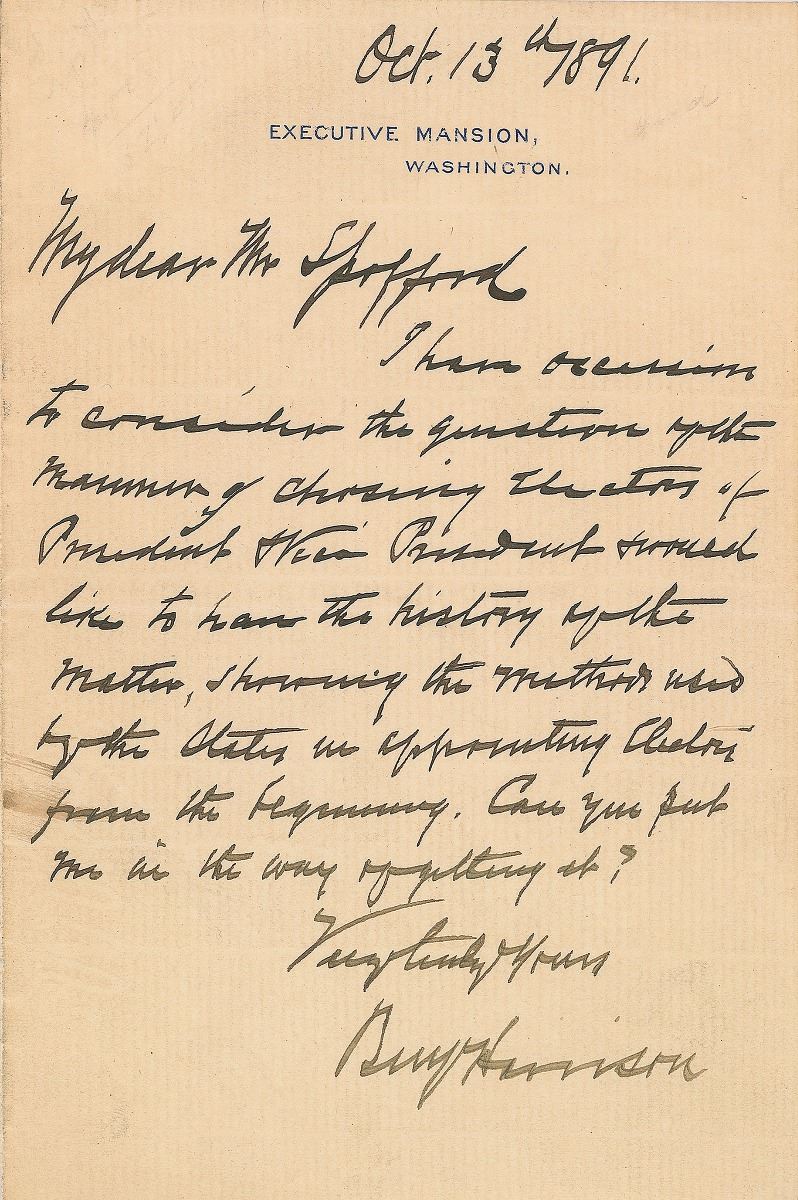 Oct. 13th 1891.
EXECUTIVE MANSION,
WASHINGTON.
My dear Mr Spofford
I have occasion
to consider the question of the
manner of choosing Electors of
President & Vice President & would
like to have the history of the
matter, showing the methods used
by the States in appointing Electors
from the beginning. Can you put
me in the way of getting it?
Very truly Yours
Benj Harrison